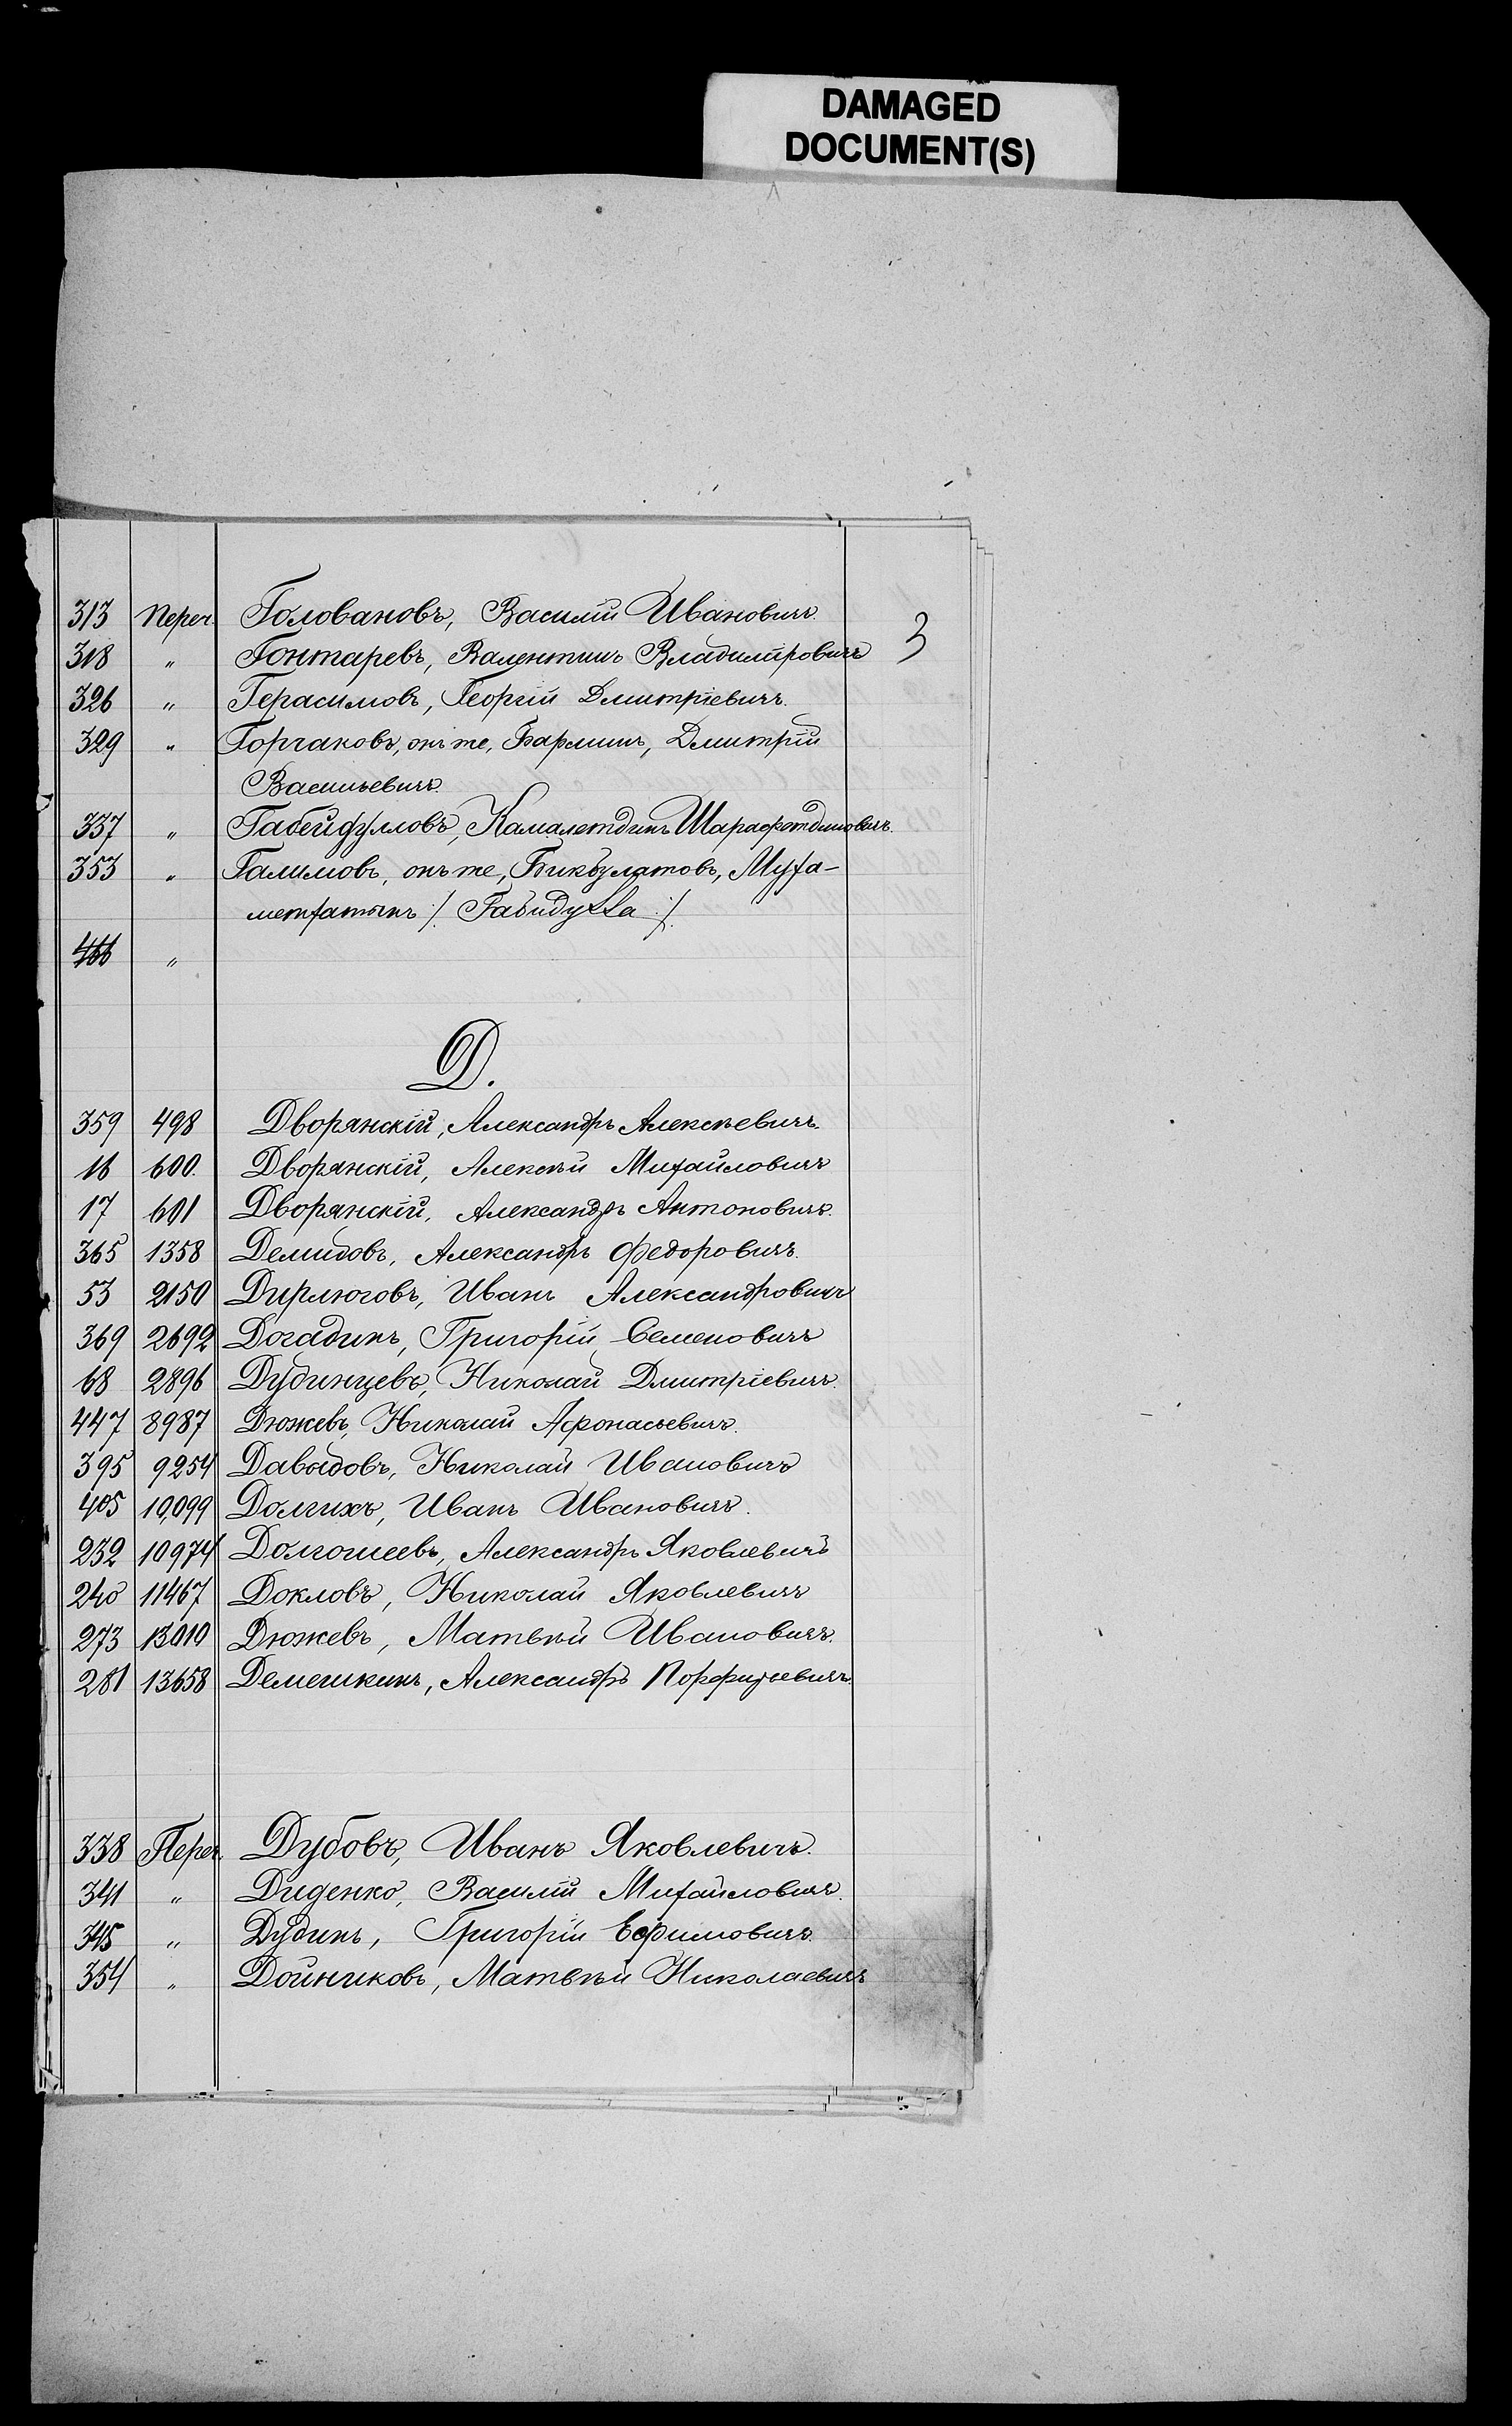 DAMAGED
DOCUMENT(S)
313 Переч. Головановъ, Василій Ивановичъ.
3
318 " Гонтаревъ, Валентинъ Владиміровичъ
326 " Герасимовъ, Георгій Дмитріевичъ.
329 " Горчаковъ, онъ же, Бармин, Дмитрій
Васильевичъ.
337 " Габейдулловъ, Камалетдинъ Шарафетдиновичъ.
353 " Галимовъ, онъ же, Бикбулатовъ, Муха-
метхатынъ /: Габидулла :/
466 "
Д.
359 498 Дворянскій, Александръ Алексѣевичъ.
16 600. Дворянскій, Алексѣй Михайловичъ
17 601 Дворянскій, Александръ Антоновичъ.
365 1358 Демидовъ, Александръ Федоровичъ.
53 2150 Дирлюговъ, Иванъ Александровичъ
369 2692 Догадинъ, Григорій Семеновичъ
68 2896 Дубинцевъ, Николай Дмитріевичъ.
447 8987 Дюжевъ, Николай Афонасьевичъ.
395 9254 Давыдовъ, Николай Ивановичъ
405 10,099 Долгихъ, Иванъ Ивановичъ.
232 10974 Долгошеевъ, Александръ Яковлевичъ
240 11467 Докловъ, Николай Яковлевичъ
273 13010 Дюжевъ, Матвѣй Ивановичъ.
281 13658 Демешкинъ, Александръ Порфирьевичъ.
338 Переч. Дубовъ, Иванъ Яковлевичъ.
341 " Диденко, Василій Михайловичъ.
345 " Дудинъ, Григорій Ефимовичъ.
354 " Дойниковъ, Матвѣй Николаевичъ